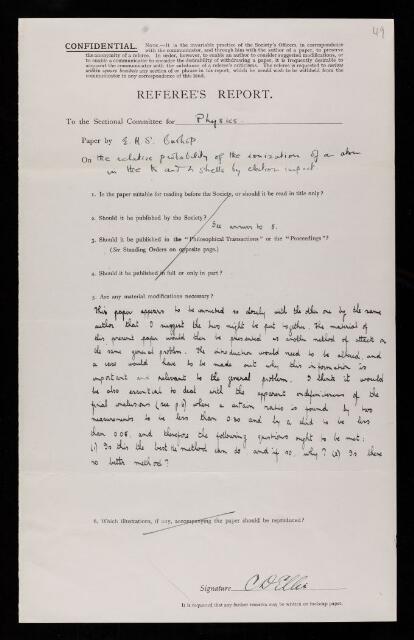 49
CONFIDENTIAL.
NOTE.—It is the invariable practice of the Society's Officers, in correspondence
with the communicator, and through him with the author of a paper, to preserve
the anonymity of a referee. In order, however, to enable an author to consider suggested modifications, or
to enable a communicator to consider the desirability of withdrawing a paper, it is frequently desirable to
acquaint the communicator with the substance of a referee's criticisms. The referee is requested to enclose
within square brackets any section of or phrase in his report, which he would wish to be withheld from the
communicator in any correspondence of this kind.
REFEREE'S REPORT.
To the Sectional Committee for Physics
Paper by E. H. S. Burhop
On the relative probability of the ionization of an atom
in the K and L shells by electron impact
1. Is the paper suitable for reading before the Society, or should it be read in title only?
2. Should it be published by the Society?
See answer to 5.
3. Should it be published in the "Philosophical Transactions" or the "Proceedings"?
(See Standing Orders on opposite page.)
4. Should it be published in full or only in part?
5. Are any material modifications necessary?
This paper appears to be connected so closely with the other one by the same
author that I suggest the two might be put together. The material of
this present paper would then be presented as another method of attack on
the same general problem. The introduction would need to be altered, and
a case would have to be made out why this information is
important and relevant to the general problem. I think it would
be also essential to deal with the apparent
final conclusions (see p.6) where a certain ratio is found by two
measurements to be less than 0.30 and by a third to be less
than 0.06, and therefore the following questions ought to be met:
(1) Is this the best the method can do and if so, why? (2) Is there
no better method?
6. Which illustrations, if any, accompanying the paper should be reproduced?
Signature C D Ellis
It is requested that any further remarks may be written on foolscap paper.